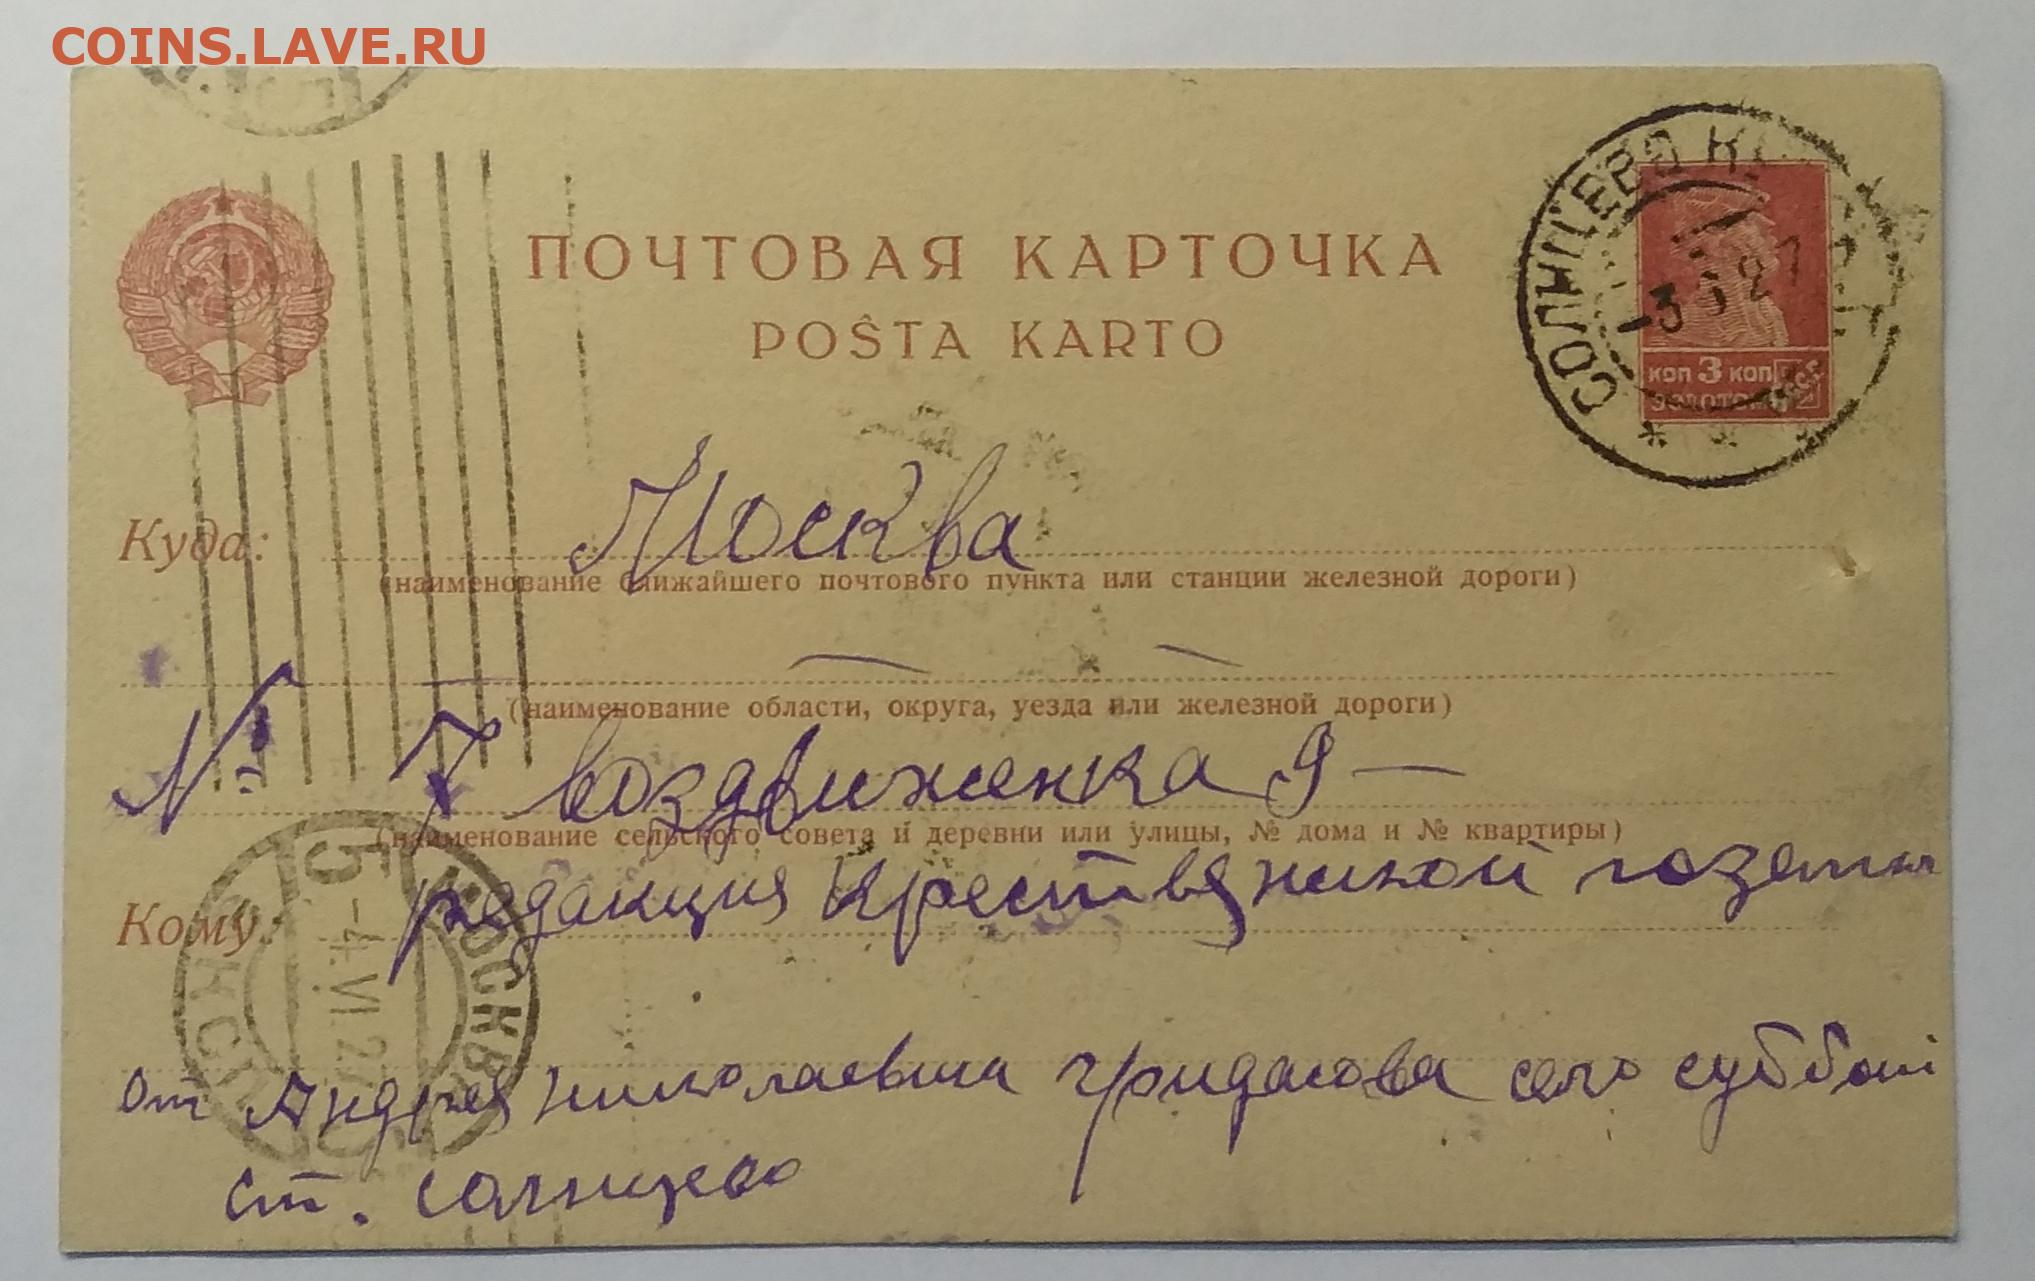 COINS.LAVE.RU
СОЛНЦЕВО
-3 6 27
ПОЧТОВАЯ КАРТОЧКА
POŜTA KARTO
КОП 3 КОП
ЗОЛОТОМ
Куда: Москва
(наименование ближайшего почтового пункта или станции железной дороги)
(наименование области, округа, уезда или железной дороги)
№ 7 Воздвиженка 9 —
(наименование сельского совета и деревни или улицы, № дома и № квартиры)
Кому: редакция Крествянской газеты
МОСКВА
Б
-4.VI.27
ЭКСП
От Андрея николаевича гридасова село суббот
ст. солнцево